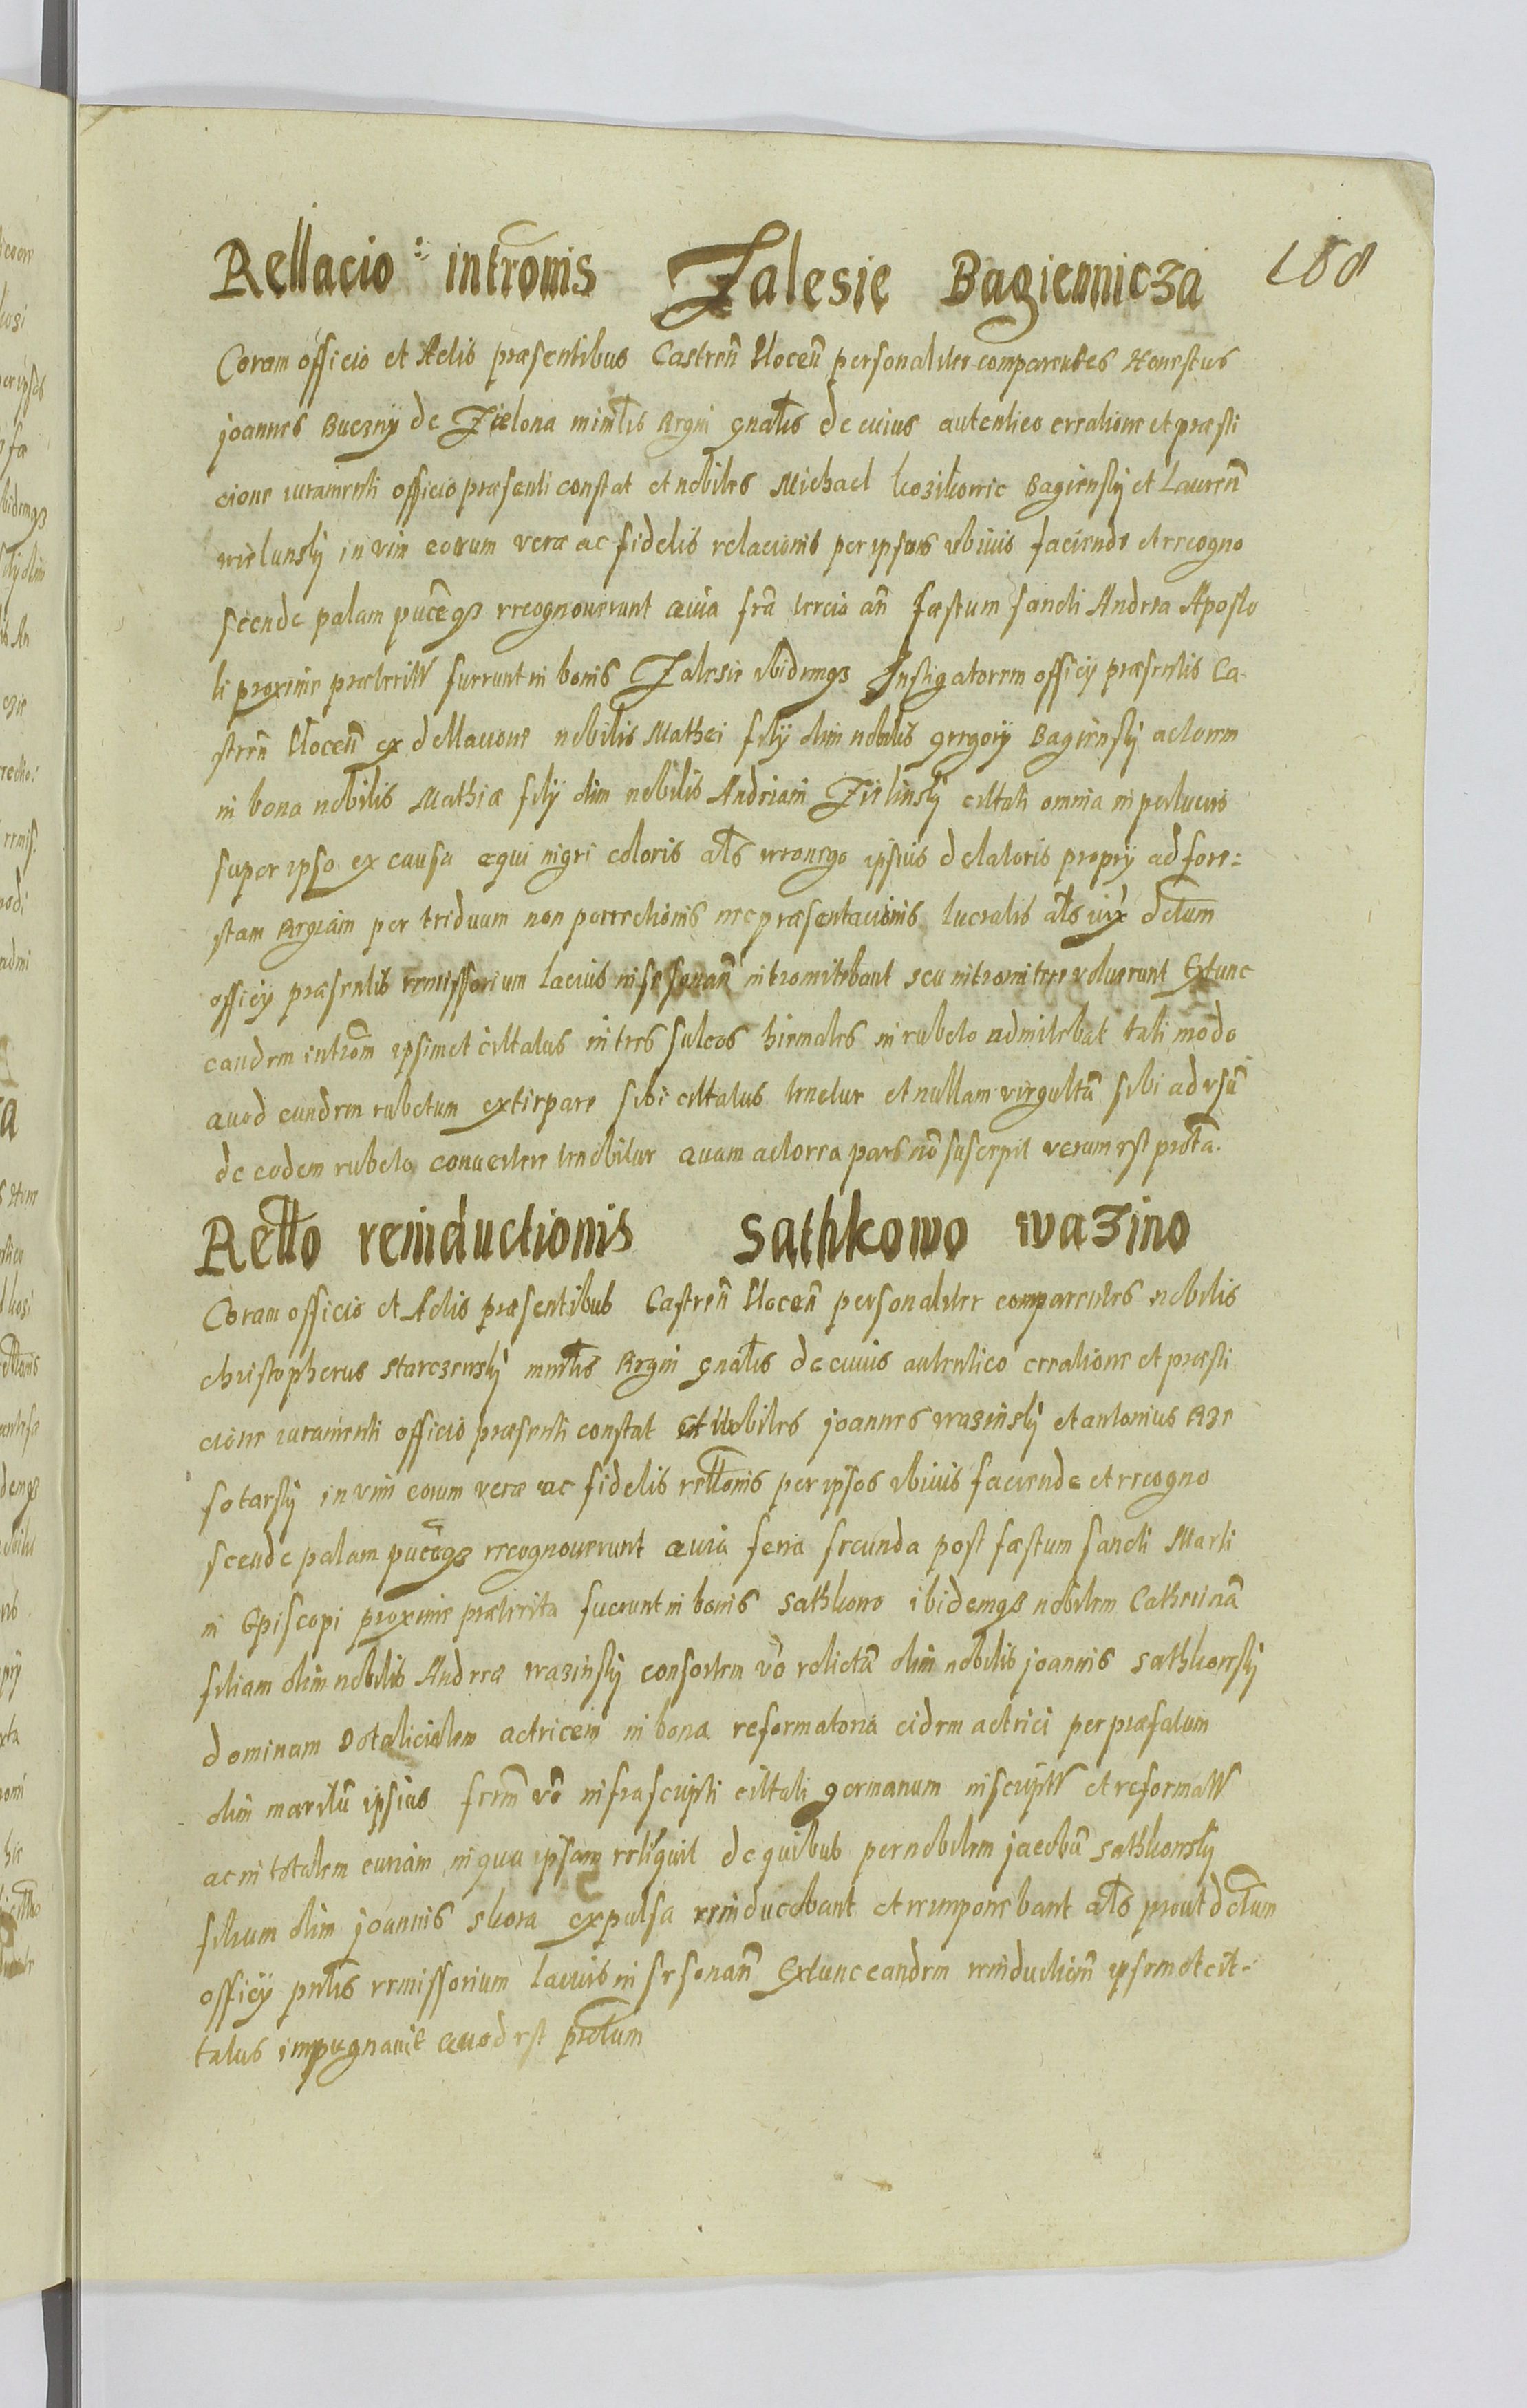 Rellacio intromis Zalesie Bagiennicza 188
Coram officio et Actis præsentibus Castreñ Ploceñ personaliter comparentes Honestus
joannes Buczny de Zielona minlis Regni gnalis de cuius autentico creatione et præsti
cione iuramenti officio præsenti constat et nobiles Michael kozikowic Bagiensky et Laureñ
wielunsky in vim eorum veræ ac fidelis relacionis per ipsos ubivis faciende et recogno
scende palam pucegz recognoverunt quia fra tercia añ fæstum sancti Andreæ Aposto
li proxime præterita fuerunt in bonis Zalesie ibidemqz Instigatorem officy præsentis Ca-
streñ Ploceñ ex dellacione nobilis Mathei fily olim nobilis gregory Bagiensky actorem
in bona nobilis Mathiæ fily olim nobilis Andreæ Zielinsky cittati omnia in perlucris
super ipso ex causa equi nigri coloris als wronego ipsius delatoris propry ad fore=
stam Regiam per triduum non perrectionis nec præsentacionis lucratis als iux dctum
officy præsentis remissorium lacius in se sonañ intromitebant seu intromittere voluerunt Extunc
eandem introm̃ ipsimet cittatus in tres sulcos hiemales in rubeto admitebat tali modo
quod eundem rubetum extirpare sibi cittatus tenetur et nullam virgultã sibi ad usũ
de eodem rubeto convertere tenebitur quam actorea pars nõ suscepit verum est prota.
Rello reinductionis Sathkowo wazino
Coram officio et Actis præsentibus Castreñ Ploceñ personaliter comparentes nobilis
christopherus starczensky minlis Regni gnalis de cuius autentico creatione et præsti
cione iuramenti officio præsenti constat et Nobiles joannes wazinsky et antonius Rze
sotarsky in vim eorum veræ ac fidelis rellonis per ipsos ubivis faciende et recogno
scende palam pucegz recognoverunt quia feria secunda post fæstum sancti Marti
ni Episcopi proxime præterita fuerunt in bonis Sathkowo ibidemqz nobilem Catherinã
filiam olim nobilis Andreæ wazinsky consortem võ relictã olim nobilis joannis Sathkowsky
dominam Dotalicialem actricem in bona reformatoria eidem actrici per præfatum
olim maritũ ipsius frem̃ võ infrascripti cittati germanum inscripta et reformata
ac in totalem curiam in qua ipsam reliquit de quibus per nobilem jacobũ Sathkowsky
filium olim joannis skora expulsa reinducebant et reimponebant als prout dctum
officy pntis remissorium lacius in se sonañ Extunc eandem reinductionem̃ ipsemet cit-
tatus impugnavit quod est prottum